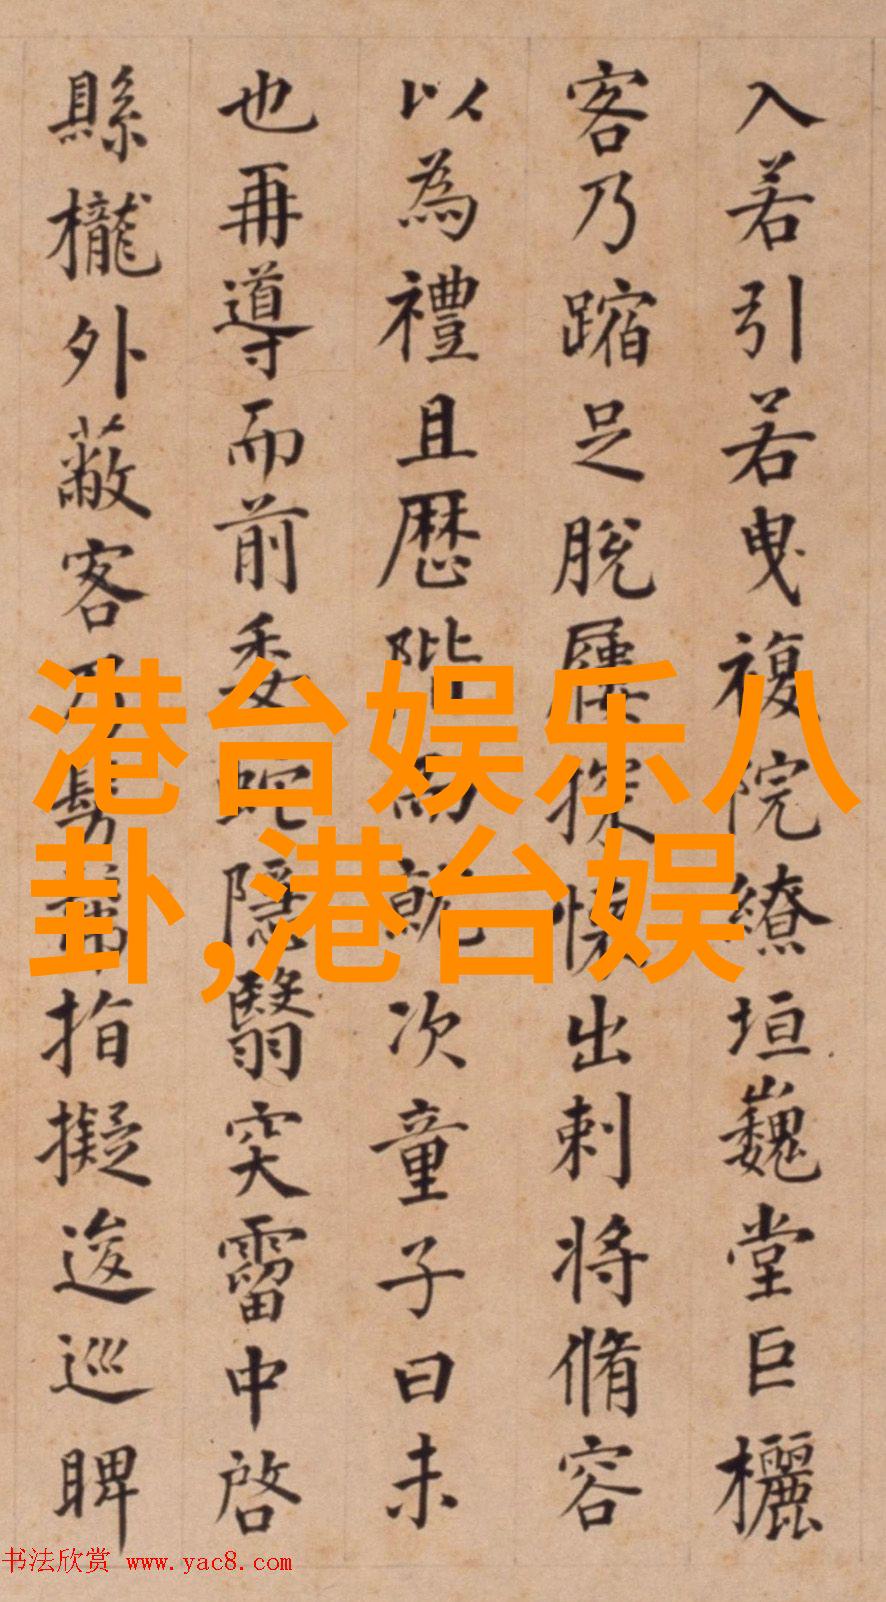 入若引若曳複院繚垣巍堂巨欐
客乃蹜足脫屨探懷出刺將脩容
以為禮且歷階而就次童子曰未
也再導而前委蛇隱翳突霤中啓
縣櫳外蔽客乃髣髴指擬逡巡睥
港台娱乐八
卦,港台娱
书法欣赏 www.yac8.com